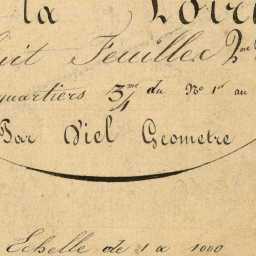 la Loire
uit Feuilles 2me
quartiers 3/4 me du No 1er au
Par Viel Geometre
Echelle de 1 a 1000